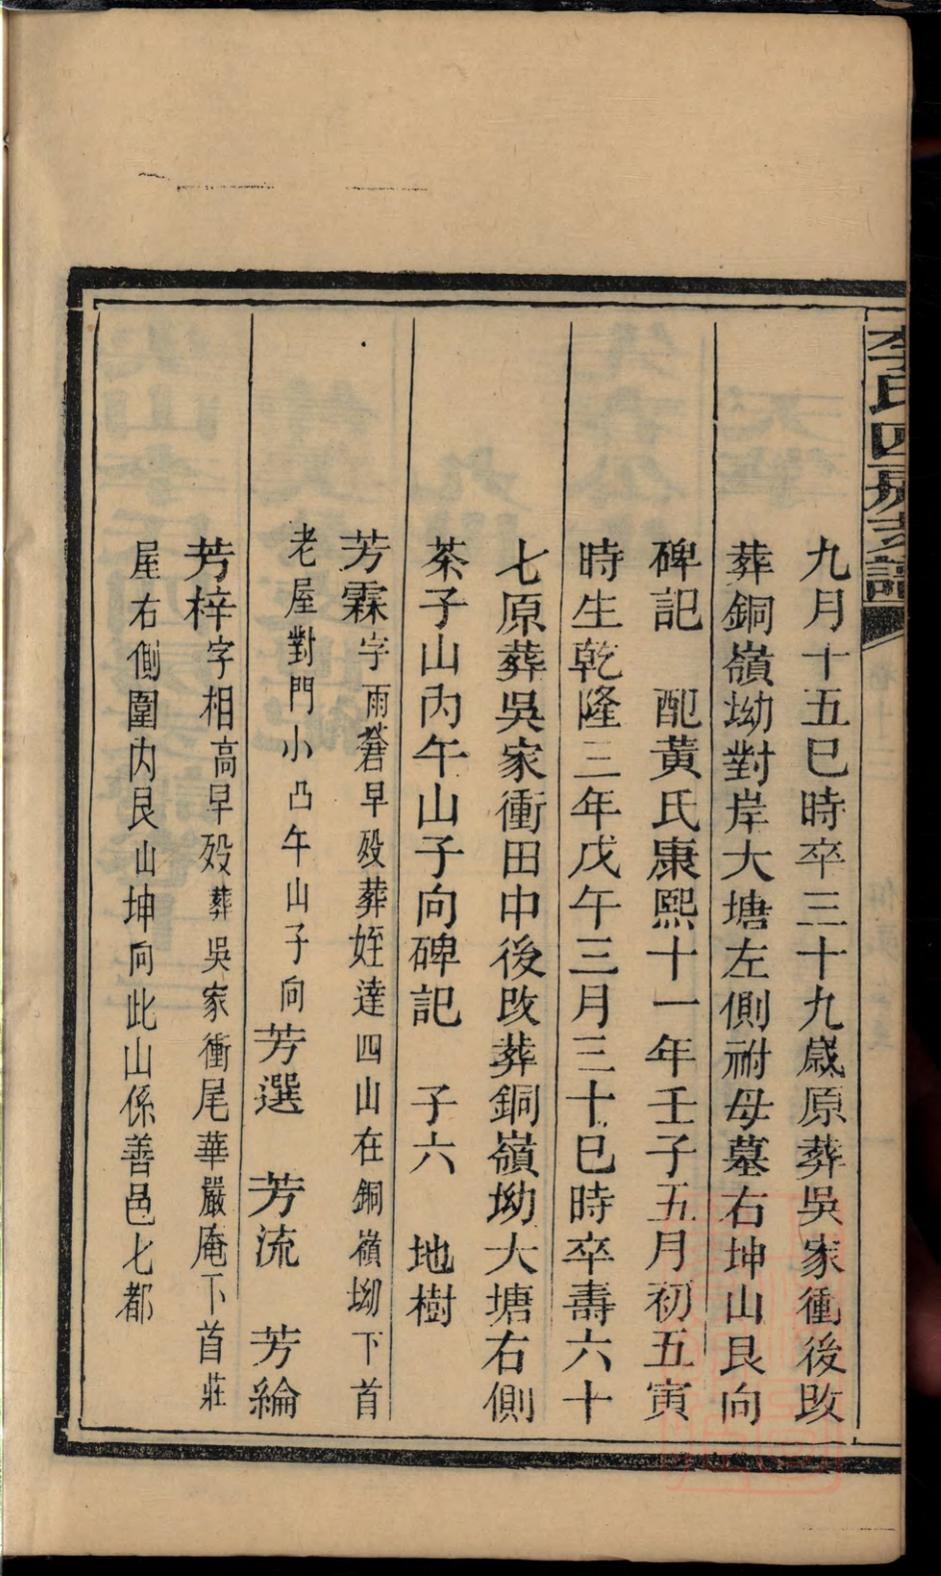 李氏四房支譜
九月十五巳時卒三十九歲原葬吳家衝後改
葬銅嶺坳對岸大塘左側祔母墓右坤山艮向
碑記　配黃氏康熙十一年壬子五月初五寅
時生乾隆三年戊午三月三十巳時卒壽六十
七原葬吳家衝田中後改葬銅嶺坳大塘右側
茶子山內午山子向碑記　子六　地樹
芳霖字雨蒼早殁葬姪達四山在銅嶺坳下首
老屋對門小凸午山子向芳選　芳流　芳綸
芳梓字相高早殁葬吳家衝尾華嚴庵下首莊
屋右側圍內艮山坤向此山係善邑七都